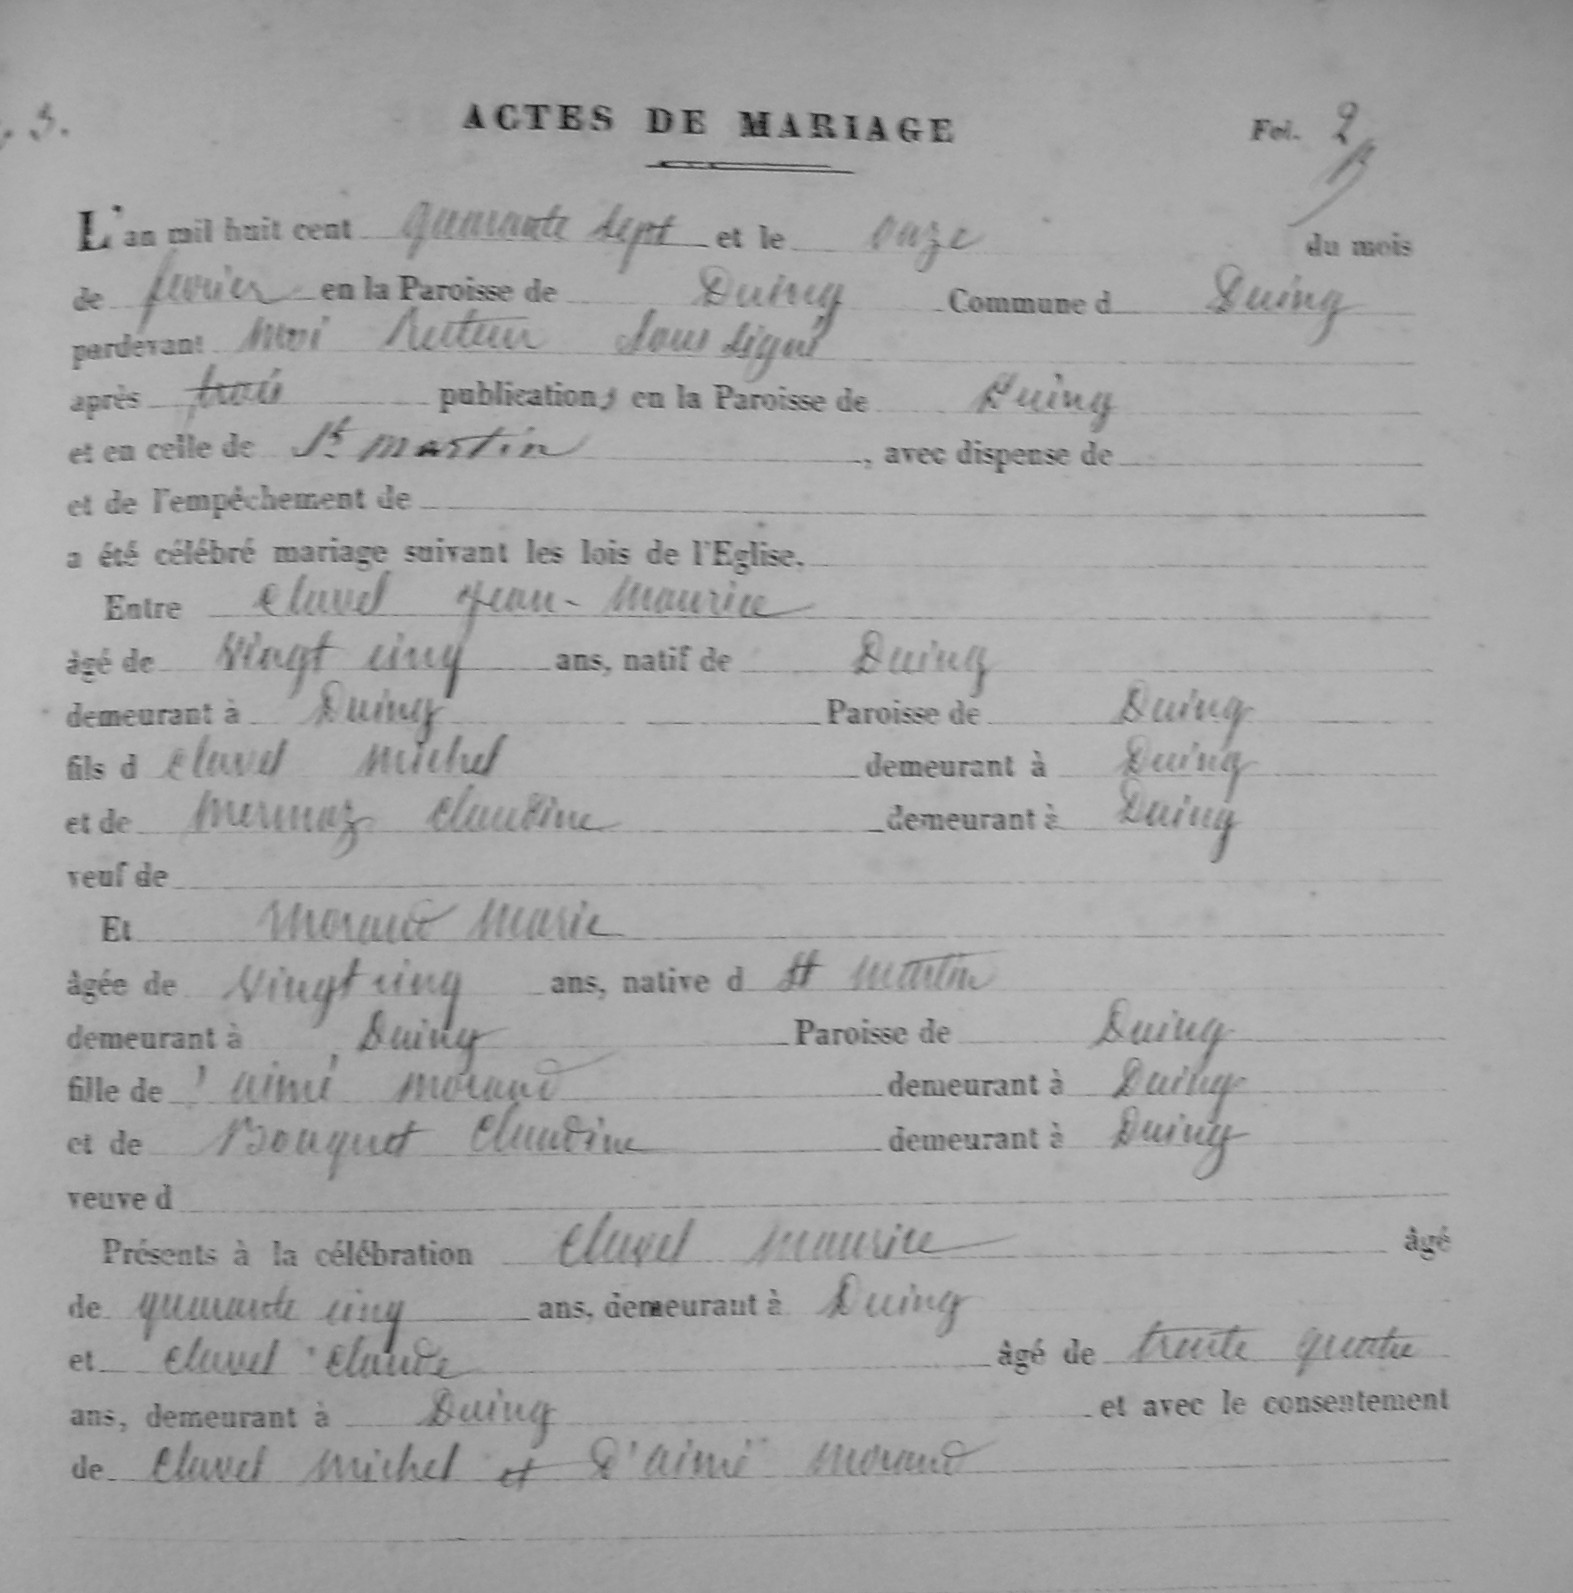 . 3.
ACTES DE MARIAGE
Fol. 2
L'an mil huit cent quarante sept et le onze du mois
de fevrier en la Paroisse de Duing Commune d Duing
pardevant Moi Recteur Sous signé
après trois publications en la Paroisse de Duing
et en celle de St martin, avec dispense de
et de l'empêchement de
a été célébré mariage suivant les lois de l'Eglise,
Entre Clavel Jean-Maurice
âgé de Vingt cinq ans, natif de Duing
demeurant à Duing Paroisse de Duing
fils d Clavel Michel demeurant à Duing
et de Mermaz Claudine demeurant à Duing
veuf de
Et Moraud Marie
âgée de Vingt cinq ans, native d St Martin
demeurant à Duing Paroisse de Duing
fille de d'aimé Moraud demeurant à Duing
et de Bouquet Claudine demeurant à Duing
veuve d
Présents à la célébration Clavel Maurice âgé
de quarante cinq ans, demeurant à Duing
et Clavel Claude âgé de trente quatre
ans, demeurant à Duing et avec le consentement
de Clavel Michel et D'aimé Moraud